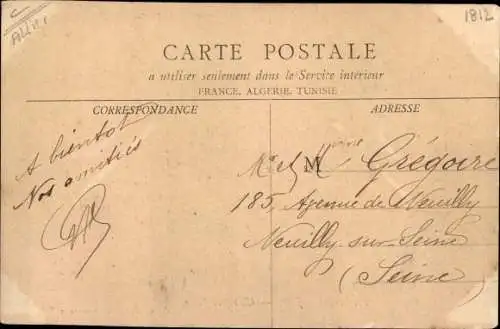 1812
CARTE POSTALE
a utiliser seulement dans le Service intérieur
FRANCE, ALGERIE, TUNISIE
CORRESPONDANCE
ADRESSE
A bientot
Nos amitiés
M Grégoire
185, Avenue de Neuilly
Neuilly-sur-Seine
(Seine)